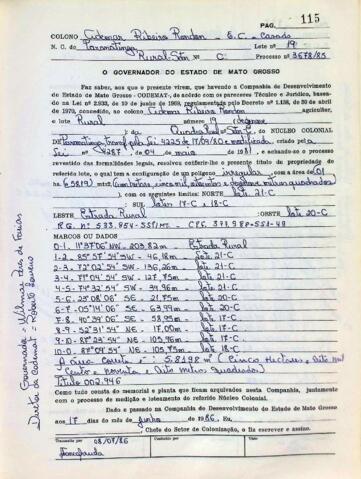 PAG. 115
COLONO Cidemar Ribeiro Rondon - E.C - Casado
N. C. de Paranatinga Lote nº 19
Rural-Stn C Processo nº 3678/85
O GOVERNADOR DO ESTADO DE MATO GROSSO
Faz saber, aos que o presente virem, que havendo a Companhia de Desenvolvimento
do Estado de Mato Grosso - CODEMAT, de acôrdo com os pareceres Técnico e Jurídico, basea-
do na Lei nº 2.933, de 19 de junho de 1969, regulamentada pelo Decreto nº 1.138, de 30 de abril
de 1970, concedido, ao colono Cidemar Ribeiro Rondon agricultor,
o lote Rural número 19
da DO NÚCLEO COLONIAL
DE Paranatinga criado pela
Lei 4287 de 04 de maio de 1981, e achando-se o processo
revestido das formalidades legais, resolveu conferir-lhe o presente título de propriedade do
referido lote, o qual tem a configuração de um polígono irregular com a área de (01
com os seguintes limites: NORTE lote 21-C
; SUL lotes 17-C e 18-C
LESTE Estrada Rural ; OESTE lote 20-C
MARCOS OU DADOS
0-1. 11°37'06" NW - 203,82m - Estrada Rural
1-2 - 85°57'54" SW - 46,18m - lote 21-C
2-3 - 72°02'54" SW - 136,26m - lote 21-C
3-4 - 79°04'54" SW - 127,75m - lote 21-C
4-5 - 74°32'54" SW - 34,96m - lote 21-C
5-6 - 25°08'06" SE - 21,75m - lote 20-C
6-7 - 05°14'06" SE - 63,99m - lote 20-C
7-8 - 40°39'06" SE - 58,95m - lote 17-C
8-9 - 52°31'54" NE - 17,00m - lote 17-C
9-10 - 87°23'54" NE - 105,96m - lote 17-C
10-0 - 87°09'54" NE - 105,75m - lote 18-C
A área correta é 5.8198 m² (Cinco Hectares, Oito mil
Cento e noventa e Oito metros quadrados)
Título 002.946
Como tudo consta do memorial e planta que ficam arquivados nesta Companhia, juntamente
com o processo de medição e loteamento do referido Núcleo Colonial.
Dado e passado na Companhia de Desenvolvimento do Estado de Mato Grosso
aos 17 dias do mês de junho de 1986. Eu,
Chefe do Setor de Colonização, o fiz escrever e assino.
Transcrito por 08/07/86
Conferido por
Visto
Governador - Wilmar Peres de Farias
Diretor da Codemat - Roberto Loureiro